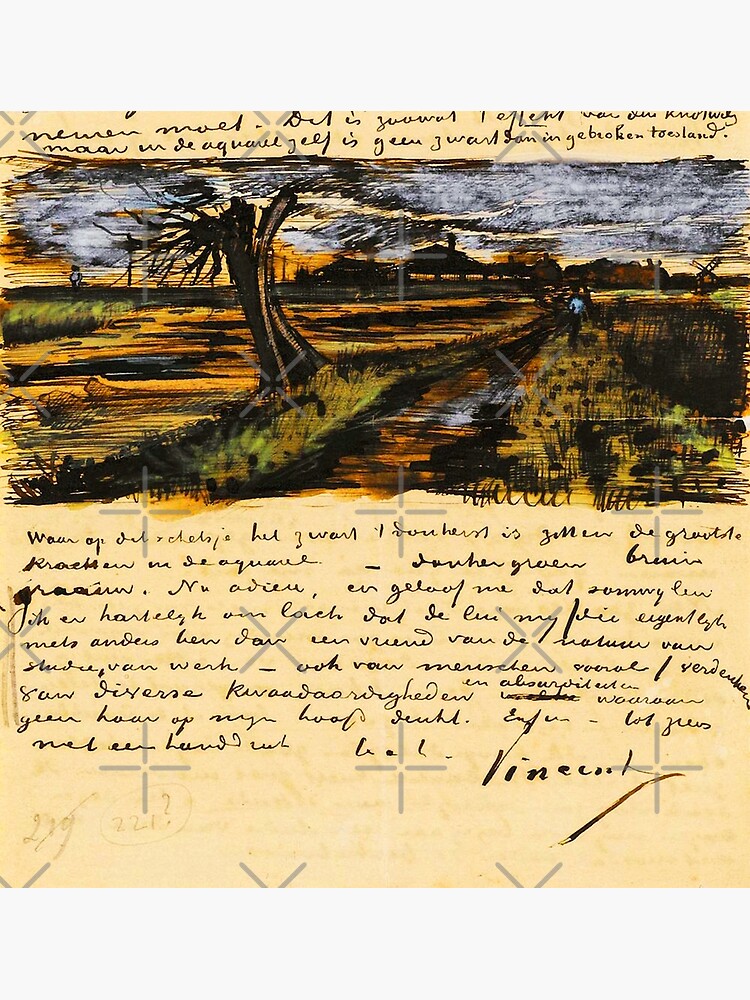 nemen moet. Dit is zoowat 't effekt van den knotwilg
maar in de aquarel zelf is geen zwart dan in gebroken toestand.
Waar op dit schetsje het zwart 't donkerst is zitten de grootste
krachten in de aquarel – donkergroen bruin
graauw. Nu adieu, en geloof me dat somwijlen
ik er hartelijk om lach dat de lui mij /die eigentlijk
niets anders ben dan een vriend van de natuur van
studie, van werk – ook van menschen vooral/ verdenken
van diverse kwaadaardigheden en absurditeiten waaraan
geen haar op mijn hoofd denkt. Enfin – tot ziens
met een handdruk t.à t. Vincent
219 221?